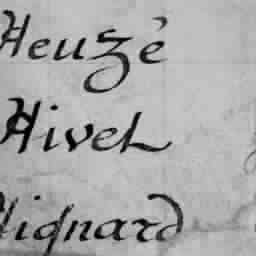 Heuzé
Hivel
Mignard